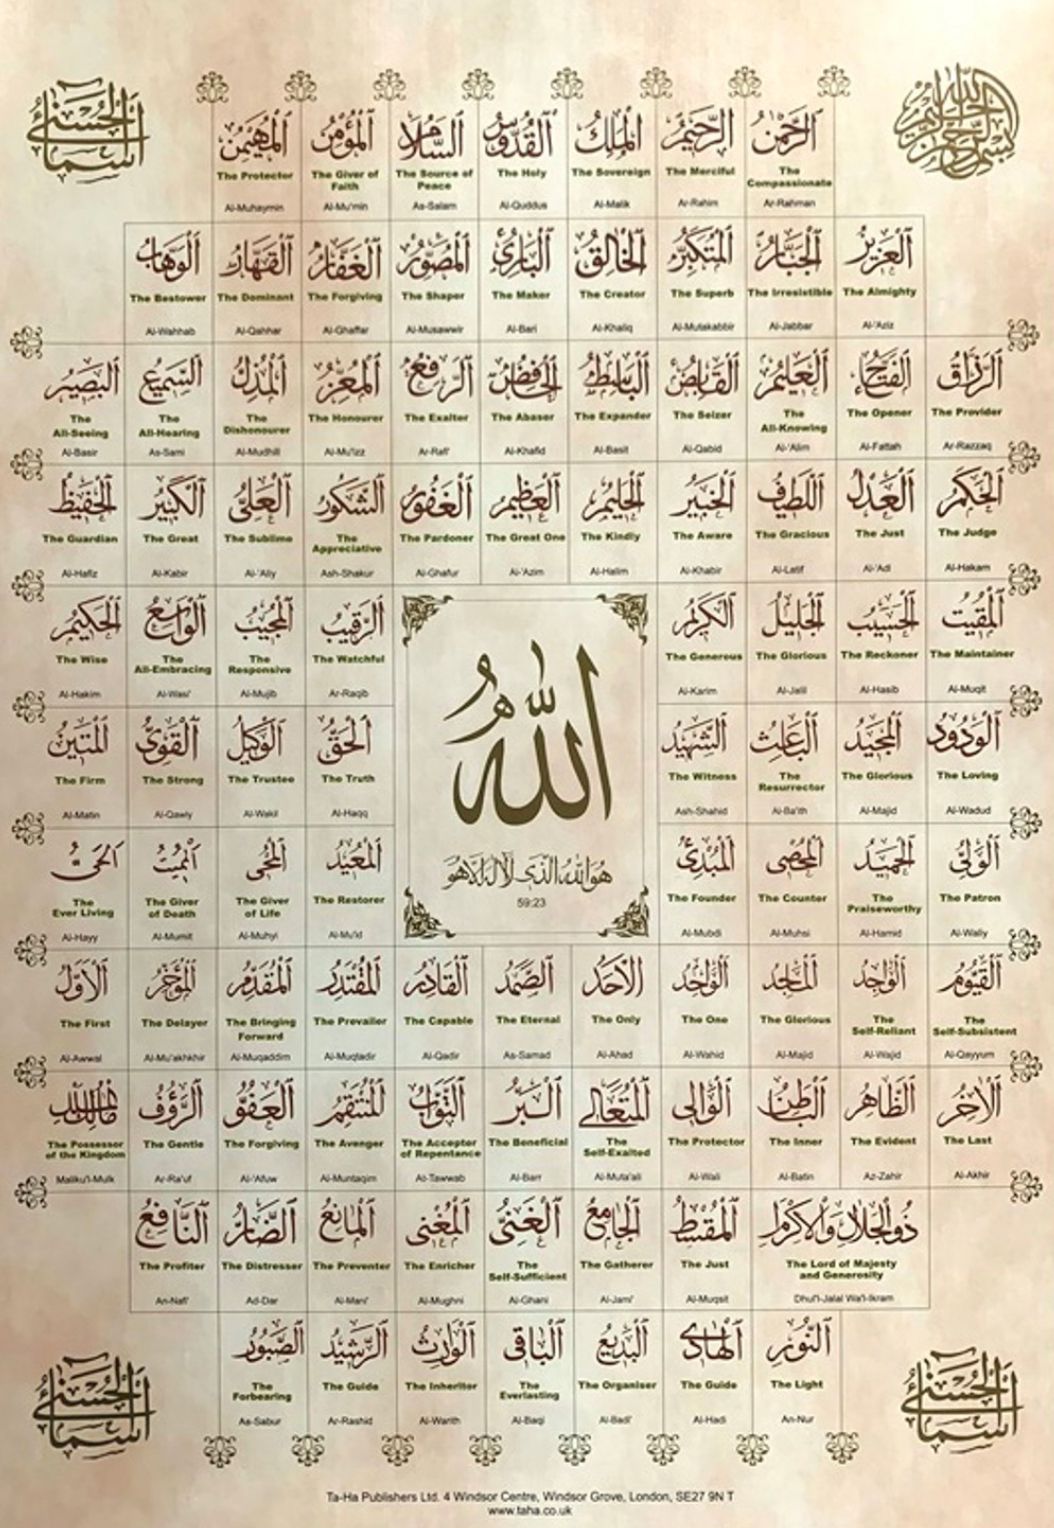 بسم الله الرحمن الرحيم
أسماء الحسنى
الرَّحْمٰنُ
The
Compassionate
Ar-Rahman
الرَّحِيْمُ
The Merciful
Ar-Rahim
الْمَلِكُ
The Sovereign
Al-Malik
الْقُدُّوْسُ
The Holy
Al-Quddus
السَّلَامُ
The Source of
Peace
As-Salam
الْمُؤْمِنُ
The Giver of
Faith
Al-Mu'min
الْمُهَيْمِنُ
The Protector
Al-Muhaymin
الْعَزِيْزُ
The Almighty
Al-'Aziz
الْجَبَّارُ
The Irresistible
Al-Jabbar
الْمُتَكَبِّرُ
The Superb
Al-Mutakabbir
الْخَالِقُ
The Creator
Al-Khaliq
الْبَارِئُ
The Maker
Al-Bari
الْمُصَوِّرُ
The Shaper
Al-Musawwir
الْغَفَّارُ
The Forgiving
Al-Ghaffar
الْقَهَّارُ
The Dominant
Al-Qahhar
الْوَهَّابُ
The Bestower
Al-Wahhab
الرَّزَّاقُ
The Provider
Ar-Razzaq
الْفَتَّاحُ
The Opener
Al-Fattah
الْعَلِيْمُ
The
All-Knowing
Al-'Alim
الْقَابِضُ
The Seizer
Al-Qabid
الْبَاسِطُ
The Expander
Al-Basit
الْخَافِضُ
The Abaser
Al-Khafid
الرَّافِعُ
The Exalter
Ar-Rafi'
الْمُعِزُّ
The Honourer
Al-Mu'izz
الْمُذِلُّ
The
Dishonourer
Al-Mudhill
السَّمِيْعُ
The
All-Hearing
As-Sami
الْبَصِيْرُ
The
All-Seeing
Al-Basir
الْحَكَمُ
The Judge
Al-Hakam
الْعَدْلُ
The Just
Al-'Adl
اللَّطِيْفُ
The Gracious
Al-Latif
الْخَبِيْرُ
The Aware
Al-Khabir
الْحَلِيْمُ
The Kindly
Al-Halim
الْعَظِيْمُ
The Great One
Al-'Azim
الْغَفُوْرُ
The Pardoner
Al-Ghafur
الشَّكُوْرُ
The
Appreciative
Ash-Shakur
الْعَلِيُّ
The Sublime
Al-'Aliy
الْكَبِيْرُ
The Great
Al-Kabir
الْحَفِيْظُ
The Guardian
Al-Hafiz
الْمُقِيْتُ
The Maintainer
Al-Muqit
الْحَسِيْبُ
The Reckoner
Al-Hasib
الْجَلِيْلُ
The Glorious
Al-Jalil
الْكَرِيْمُ
The Generous
Al-Karim
الرَّقِيْبُ
The Watchful
Ar-Raqib
الْمُجِيْبُ
The
Responsive
Al-Mujib
الْوَاسِعُ
The
All-Embracing
Al-Wasi'
الْحَكِيْمُ
The Wise
Al-Hakim
الْوَدُوْدُ
The Loving
Al-Wadud
الْمَجِيْدُ
The Glorious
Al-Majid
الْبَاعِثُ
The
Resurrector
Al-Ba'ith
الشَّهِيْدُ
The Witness
Ash-Shahid
الْحَقُّ
The Truth
Al-Haqq
الْوَكِيْلُ
The Trustee
Al-Wakil
الْقَوِيُّ
The Strong
Al-Qawiy
الْمَتِيْنُ
The Firm
Al-Matin
اللهُ
هُوَ اللهُ الَّذِي لَا إِلٰهَ إِلَّا هُوَ
59:23
الْوَلِيُّ
The Patron
Al-Waliy
الْحَمِيْدُ
The
Praiseworthy
Al-Hamid
الْمُحْصِي
The Counter
Al-Muhsi
الْمُبْدِئُ
The Founder
Al-Mubdi
الْمُعِيْدُ
The Restorer
Al-Mu'id
الْمُحْيِي
The Giver
of Life
Al-Muhyi
الْمُمِيْتُ
The Giver
of Death
Al-Mumit
الْحَيُّ
The
Ever Living
Al-Hayy
الْقَيُّوْمُ
The
Self-Subsistent
Al-Qayyum
الْوَاجِدُ
The
Self-Reliant
Al-Wajid
الْمَاجِدُ
The Glorious
Al-Majid
الْوَاحِدُ
The One
Al-Wahid
الْأَحَدُ
The Only
Al-Ahad
الصَّمَدُ
The Eternal
As-Samad
الْقَادِرُ
The Capable
Al-Qadir
الْمُقْتَدِرُ
The Prevailer
Al-Muqtadir
الْمُقَدِّمُ
The Bringing
Forward
Al-Muqaddim
الْمُؤَخِّرُ
The Delayer
Al-Mu'akhkhir
الْأَوَّلُ
The First
Al-Awwal
الْآخِرُ
The Last
Al-Akhir
الظَّاهِرُ
The Evident
Az-Zahir
الْبَاطِنُ
The Inner
Al-Batin
الْوَالِي
The Protector
Al-Wali
الْمُتَعَالِي
The
Self-Exalted
Al-Muta'ali
الْبَرُّ
The Beneficial
Al-Barr
التَّوَّابُ
The Acceptor
of Repentance
At-Tawwab
الْمُنْتَقِمُ
The Avenger
Al-Muntaqim
الْعَفُوُّ
The Forgiving
Al-'Afuw
الرَّؤُوْفُ
The Gentle
Ar-Ra'uf
مَالِكُ الْمُلْكِ
The Possessor
of the Kingdom
Maliku'l-Mulk
ذُو الْجَلَالِ وَالْإِكْرَامِ
The Lord of Majesty
and Generosity
Dhul'l-Jalal Wa'l-Ikram
الْمُقْسِطُ
The Just
Al-Muqsit
الْجَامِعُ
The Gatherer
Al-Jami'
الْغَنِيُّ
The
Self-Sufficient
Al-Ghani
الْمُغْنِي
The Enricher
Al-Mughni
الْمَانِعُ
The Preventer
Al-Mani'
الضَّارُّ
The Distresser
Ad-Dar
النَّافِعُ
The Profiter
An-Nafi'
النُّوْرُ
The Light
An-Nur
الْهَادِي
The Guide
Al-Hadi
الْبَدِيْعُ
The Organiser
Al-Badi'
الْبَاقِي
The
Everlasting
Al-Baqi
الْوَارِثُ
The Inheritor
Al-Warith
الرَّشِيْدُ
The Guide
Ar-Rashid
الصَّبُوْرُ
The
Forbearing
As-Sabur
أسماء الحسنى
أسماء الحسنى
Ta-Ha Publishers Ltd. 4 Windsor Centre, Windsor Grove, London, SE27 9N T
www.taha.co.uk